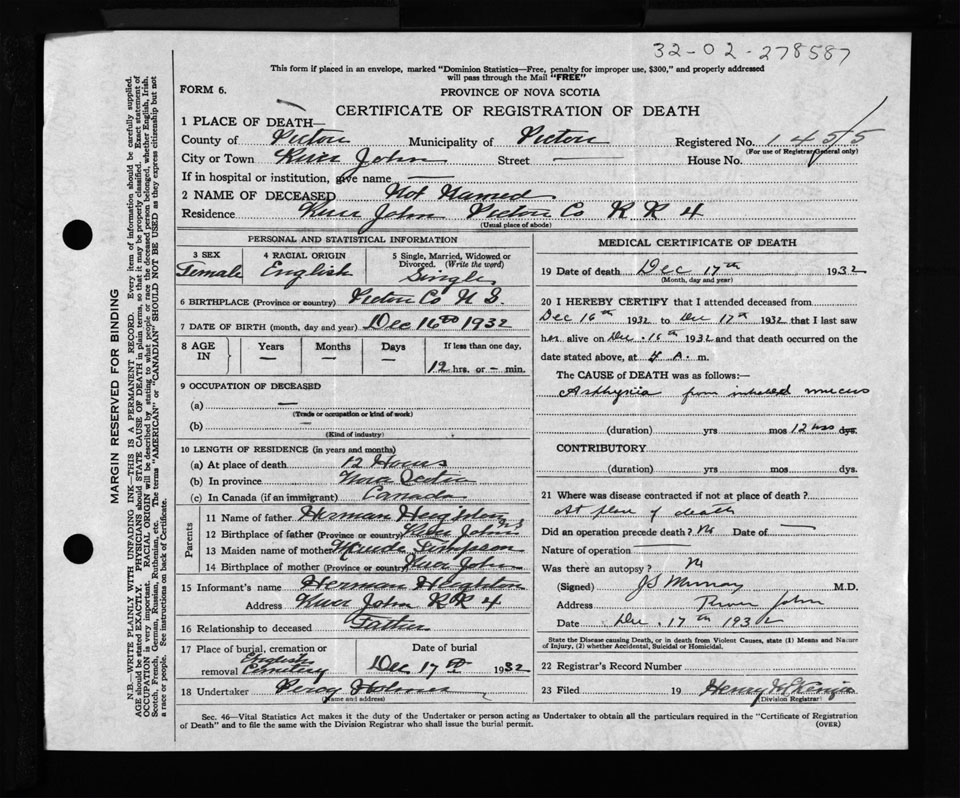 32-02-278587
This form if placed in an envelope, marked "Dominion Statistics—Free, penalty for improper use, $300," and properly addressed
will pass through the Mail "FREE"
FORM 6.
PROVINCE OF NOVA SCOTIA
CERTIFICATE OF REGISTRATION OF DEATH
1 PLACE OF DEATH—
County of Pictou Municipality of Pictou Registered No. 1455
(For use of Registrar General only)
City or Town River John Street — House No.
If in hospital or institution, give name —
2 NAME OF DECEASED Not Named
Residence River John Pictou Co R R 4
(Usual place of abode)
PERSONAL AND STATISTICAL INFORMATION
3 SEX Female
4 RACIAL ORIGIN English
5 Single, Married, Widowed or Divorced. (Write the word) Single
6 BIRTHPLACE (Province or country) Pictou Co N S.
7 DATE OF BIRTH (month, day and year) Dec 16th 1932
8 AGE IN Years — Months — Days — If less than one day, 12 hrs. or - min.
9 OCCUPATION OF DECEASED
(a) —
(Trade or occupation or kind of work)
(b) —
(Kind of industry)
10 LENGTH OF RESIDENCE (in years and months)
(a) At place of death 12 Hours
(b) In province Nova Scotia
(c) In Canada (if an immigrant) Canada
Parents
11 Name of father Herman Heighton
12 Birthplace of father (Province or country) River John NS
13 Maiden name of mother
14 Birthplace of mother (Province or country) River John
15 Informant's name Herman Heighton
Address River John RR 4
16 Relationship to deceased Father
17 Place of burial, cremation or removal English Cemetery
Date of burial Dec 17th 1932
18 Undertaker Percy Holmes
(Name and address)
MEDICAL CERTIFICATE OF DEATH
19 Date of death Dec 17th 1932
(Month, day and year)
20 I HEREBY CERTIFY that I attended deceased from
Dec 16th 1932 to Dec 17th 1932 that I last saw
her alive on Dec. 16th 1932 and that death occurred on the
date stated above, at 4 A. m.
The CAUSE of DEATH was as follows:—
Asphyxia from inhaled mucus
(duration) yrs mos 12 hrs dys.
CONTRIBUTORY
(duration) yrs. mos. dys.
21 Where was disease contracted if not at place of death?
At place of death
Did an operation precede death? No Date of —
Nature of operation —
Was there an autopsy? No
(Signed) J S Murray M.D.
Address River John
Date Dec. 17th 1932
State the Disease causing Death, or in death from Violent Causes, state (1) Means and Nature
of Injury, (2) whether Accidental, Suicidal or Homicidal.
22 Registrar's Record Number
23 Filed 19 Henry McKenzie
(Division Registrar)
Sec. 46—Vital Statistics Act makes it the duty of the Undertaker or person acting as Undertaker to obtain all the particulars required in the "Certificate of Registration
of Death" and to file the same with the Division Registrar who shall issue the burial permit. (OVER)
MARGIN RESERVED FOR BINDING
N.B.—WRITE PLAINLY WITH UNFADING INK—THIS IS A PERMANENT RECORD. Every item of information should be carefully supplied.
AGE should be stated EXACTLY. PHYSICIANS should STATE CAUSE OF DEATH in plain terms, so that it may be properly classified. Exact statement of
OCCUPATION is very important. RACIAL ORIGIN will be described by stating to what people or race the deceased person belonged, whether English, Irish,
Scotch, French, German, Russian, Ruthenian, etc. The terms "AMERICAN" or "CANADIAN" SHOULD NOT BE USED as they express citizenship but not
a race or people. See instructions on back of Certificate.